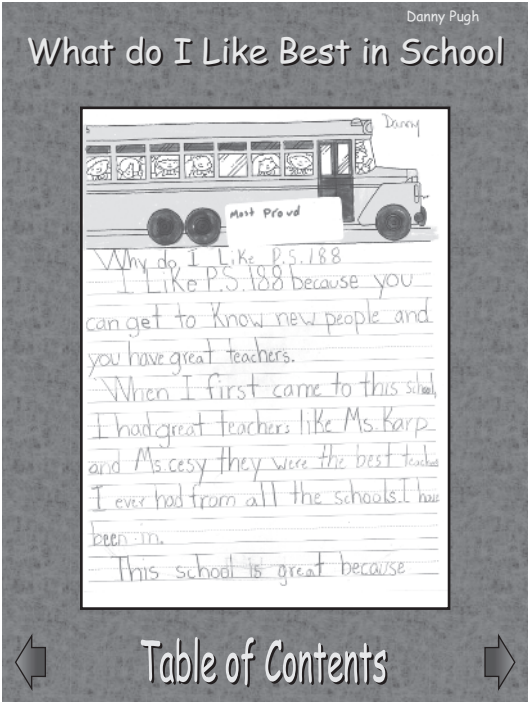 Danny Pugh
What do I Like Best in School
Danny
Most Proud
Why do I Like P.S.188
I Like P.S.188 because you
can get to Know new people and
you have great teachers.
When I first came to this school,
I had great teachers like Ms.Karp
and Ms.cesy they were the best teachers
I ever had from all the schools.I have
been in.
This school is great because
Table of Contents